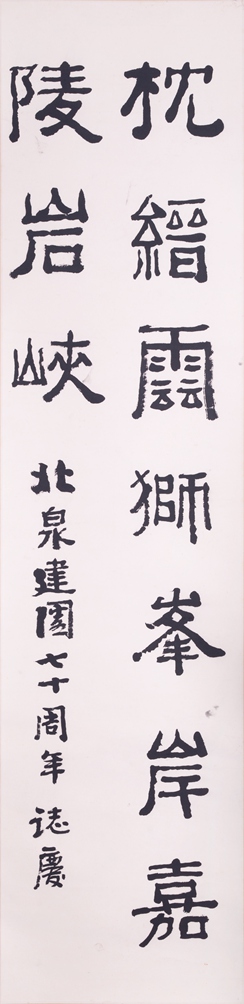 枕縉雲獅峯岸嘉
陵岩峽
北泉建園七十周年誌慶